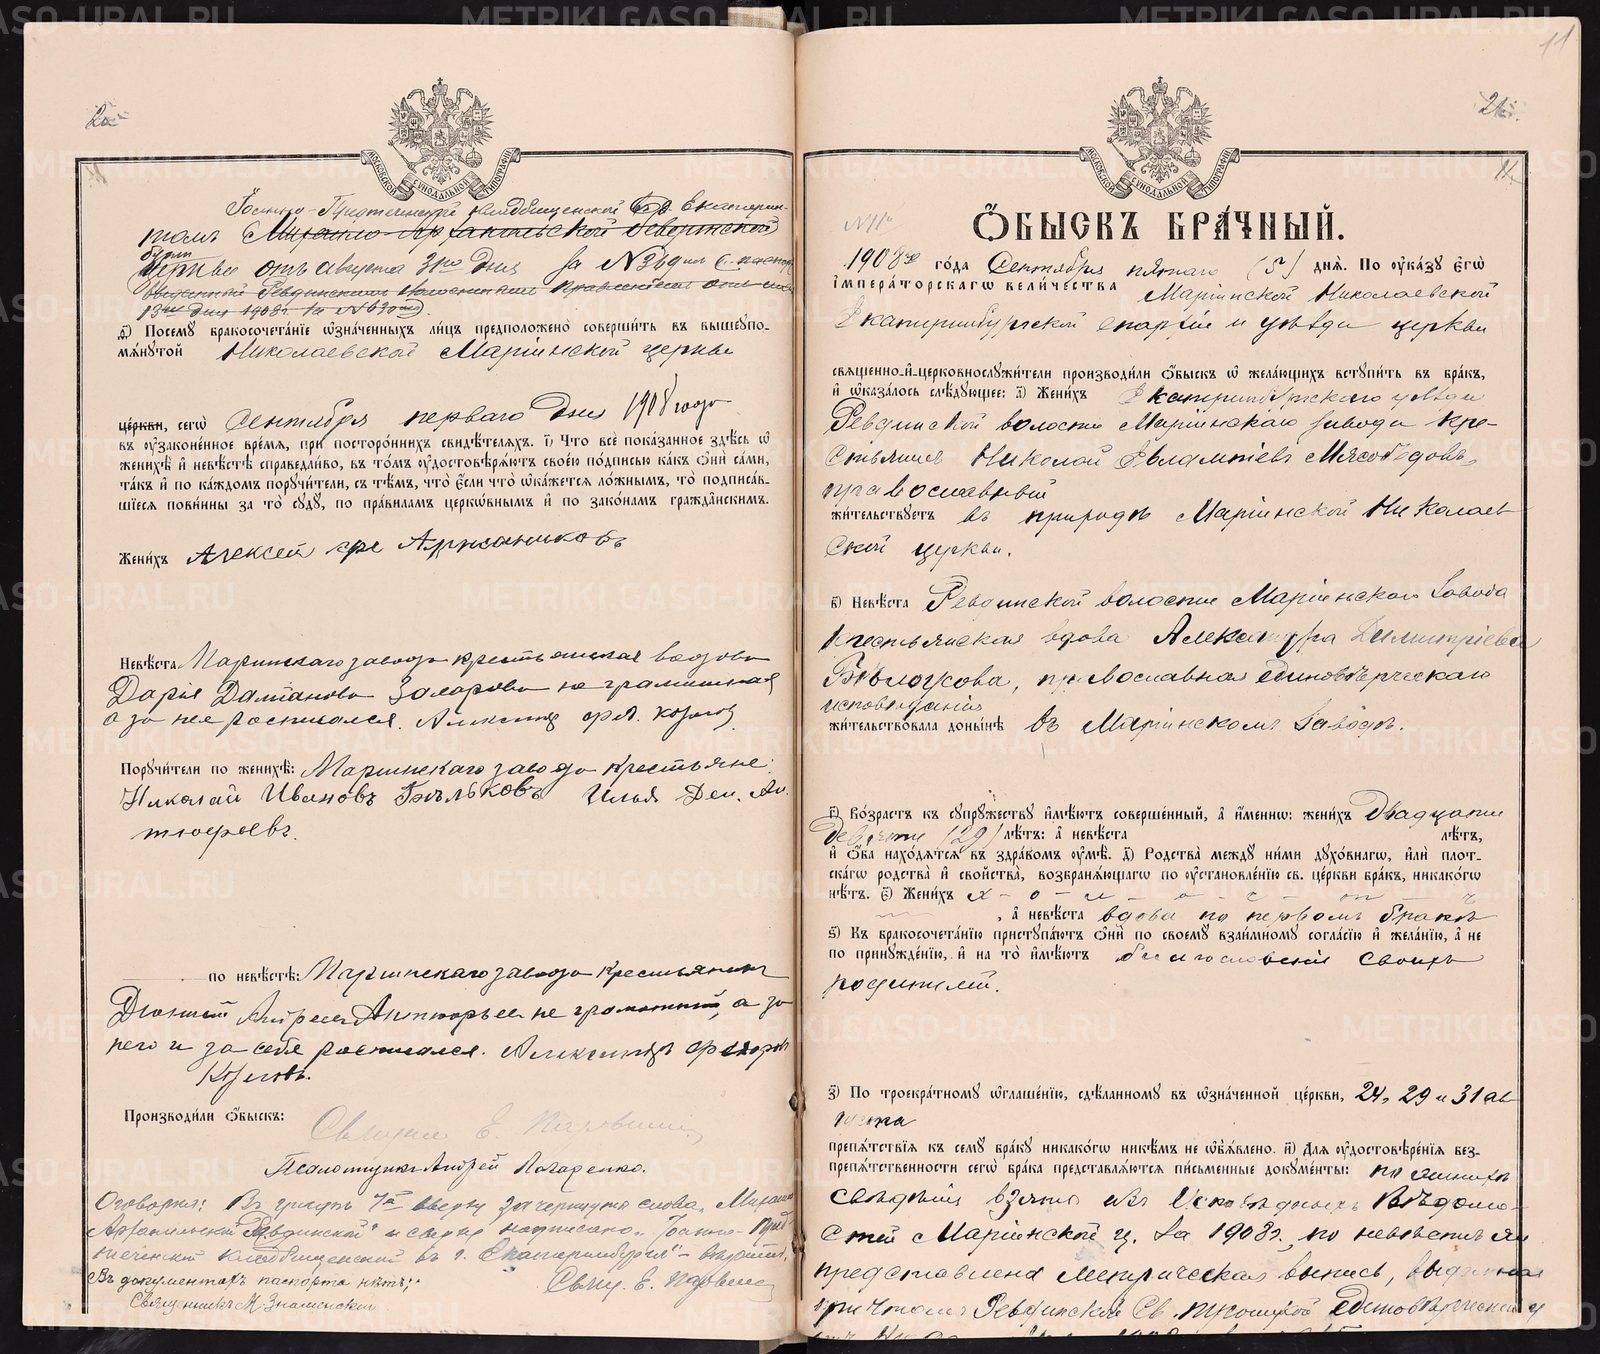 Іоанно-Предтеченской кладбищенской г. Екатерин-
бург
томъ Михаило-Архангельской Ревдинской
церкви отъ августа 31го дня за № 349
Выданный Ревдинскимъ волостнымъ Правленіемъ
13го дня 1908 г. за № 630
д҃) Посему бракосочетаніе означенныхъ лицъ предположено совершить въ вышеупо-
мянутой Николаевской Маріинской церкви
церкви, сего Сентября перваго дня 1908 года
въ узаконенное время, при постороннихъ свидѣтеляхъ. і҃) Что все показанное здѣсь о
женихѣ и невѣстѣ справедливо, въ томъ удостовѣряютъ своею подписью какъ они сами,
такъ и по каждомъ поручители, съ тѣмъ, что если что окажется ложнымъ, то подписав-
шіеся повинны за то суду, по правиламъ церковнымъ и по законамъ гражданскимъ.
Женихъ Алексей
Невѣста Маринскаго завода крестьянская вдова
Дарія Захарова не грамотная
а за нея росписался. Козловъ
Поручители по женихѣ: Маринскаго завода крестьяне:
Николай Ивановъ Бѣльковъ Илья Дем. Ан-
тюфревъ.
по невѣстѣ: Маринскаго завода крестьянинъ
Андреевъ не грамотный, а за
него и за себя росписался.
Козловъ.
Производили обыскъ:
Священ. Е.
Псаломщикъ Андрей
Оговорка: Въ графѣ 7й вверху зачеркнуто слова „Михаило
Архангельской Ревдинской" и сверху надписано „Іоанно-Пред-
теченской кладбищенской въ г. Екатеринбургѣ"
Въ документахъ паспорта нѣтъ;
Свящ. Е.
Священникъ М. Знаменскій
МОСКОВСКОЙ СѴНОДАЛЬНОЙ ТИПОГРАФІИ
11
21
МОСКОВСКОЙ СѴНОДАЛЬНОЙ ТИПОГРАФІИ
11
№ 11
ОБЫСКЪ БРАЧНЫЙ.
1908го года Сентября пятаго (5) дня. По указу Его
Императорскаго Величества Маріинской Николаевской
Екатеринбургской епархіи и уѣзда церкви
священно-и-церковнослужители производили обыскъ о желающихъ вступить въ бракъ,
и оказалось слѣдующее: а҃) Женихъ Екатеринбургскаго уѣзда
Ревдинской волости Маріинскаго завода кре-
стьянинъ Николай Евлампіевъ Мясоѣдовъ,
православный
жительствуетъ въ приходѣ Маріинской Николаев-
ской церкви.
в҃) Невѣста Ревдинской волости Маріинскаго завода
крестьянская вдова Александра Димитріева
Бѣлоусова, православная единовѣрческаго
исповѣданія
жительствовала донынѣ въ Маріинскомъ заводѣ.
г҃) Возрастъ къ супружеству имѣютъ совершенный, а именно: женихъ двадцати
девяти (29) лѣтъ: а невѣста лѣтъ,
и оба находятся въ здравомъ умѣ. д҃) Родства между ними духовнаго, или плот-
скаго родства и свойства, возбраняющаго по установленію св. церкви бракъ, никакого
нѣтъ. є҃) Женихъ х - о - л - о - с - т - ъ
, а невѣста вдова по первомъ бракѣ
ѕ҃) Къ бракосочетанію приступаютъ они по своему взаимному согласію и желанію, а не
по принужденію, и на то имѣютъ благословеніе своихъ
родителей.
з҃) По троекратному оглашенію, сдѣланному въ означенной церкви, 24, 29 и 31 ав-
густа
препятствія къ сему браку никакого никѣмъ не объявлено. и҃) Для удостовѣренія без-
препятственности сего брака представляются письменные документы: по женихѣ
свѣдѣнія взяты изъ Исповѣдныхъ Вѣдомо-
стей Маріинской ц. за 1908 г., по невѣстѣ
представлена метрическая выпись, выданная
причтомъ Ревдинской Св. Троицкой единовѣрческой ц